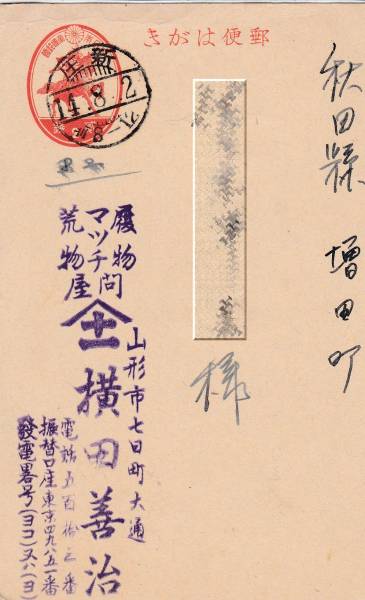 郵便はがき
14.8.2
秋田縣 増田町
様
履物
マッチ問
荒物屋
山形市七日町大通
横田善治
電話五百拾三番
振替口座東京四九八五一番
發電畧号(ヨコ)又ハ(ヨ)